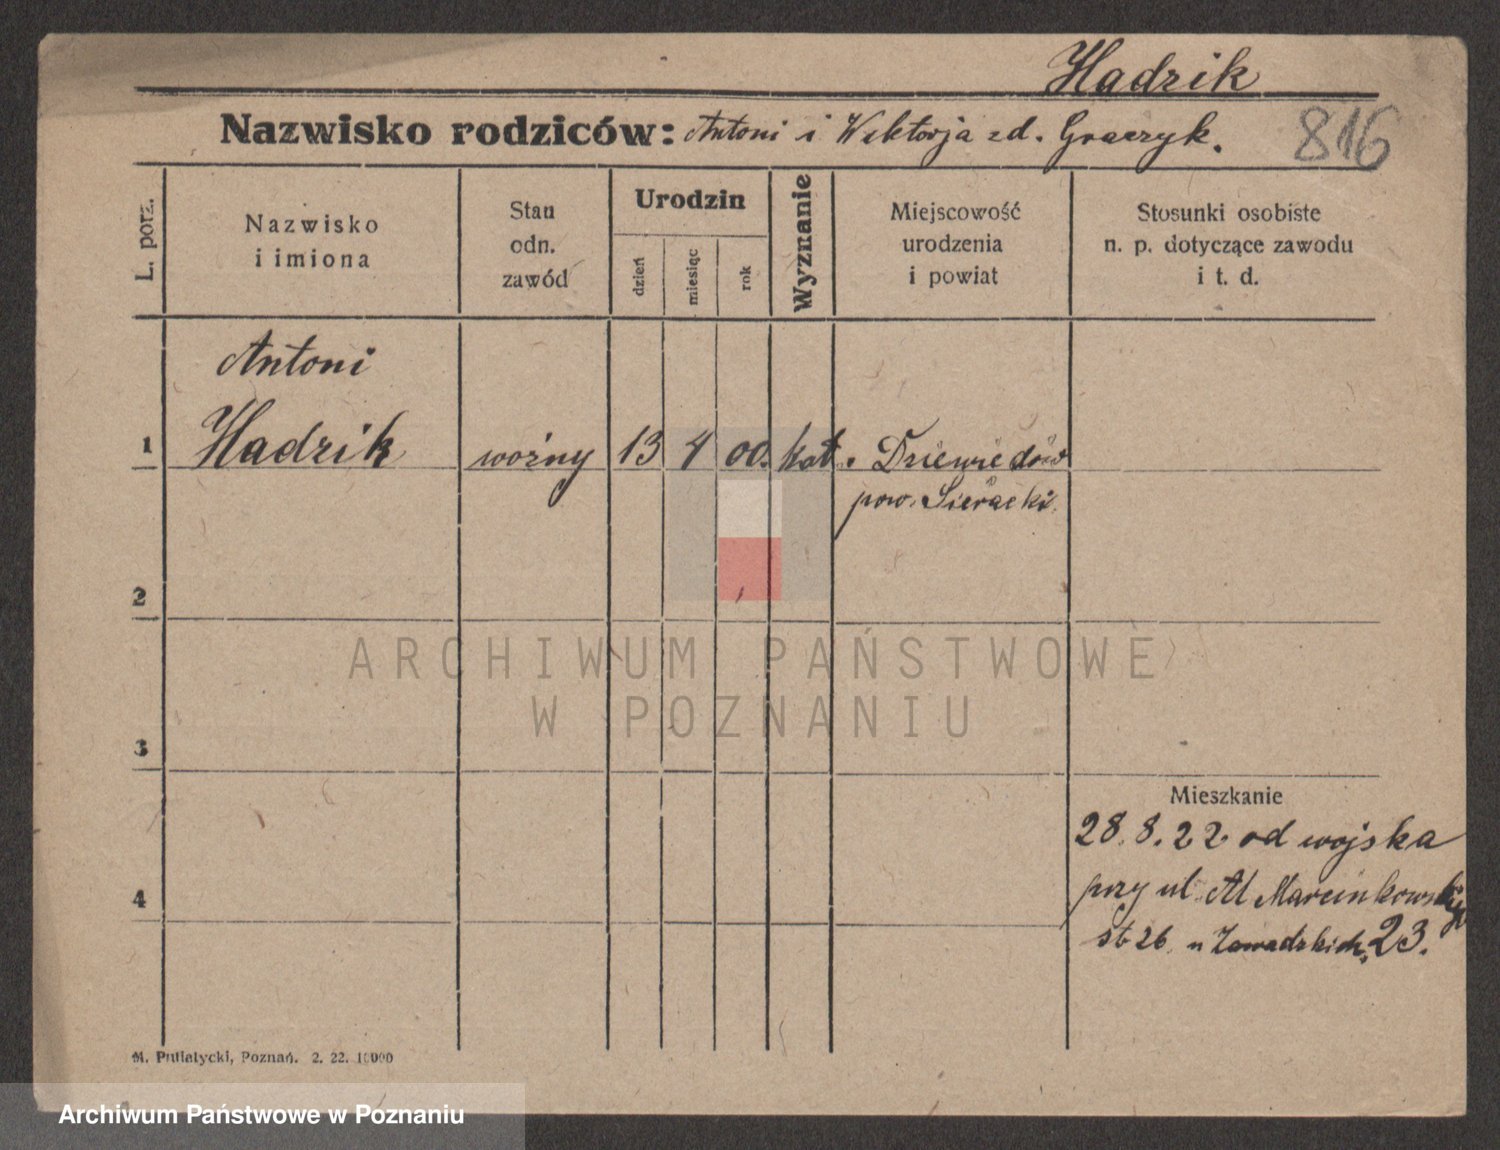 Hadzik
Nazwisko rodziców: Antoni i Wiktorja zd. Graczyk.
816
L. porz.
Nazwisko
i imiona
Stan
odn.
zawód
Urodzin
dzień
miesiąc
rok
Wyznanie
Miejscowość
urodzenia
i powiat
Stosunki osobiste
n. p. dotyczące zawodu
i t. d.
Antoni
1 Hadzik woźny 13 4 00. kat. Dziewiedów
pow. Sieracki.
2
3
Mieszkanie
28.8.22 od wojska
przy ul. Al Marcinkowskiego
4
26 u Zawadzkich, 23.
M. Putiatycki, Poznań. 2. 22. 10000
ARCHIWUM PAŃSTWOWE
W POZNANIU
Archiwum Państwowe w Poznaniu